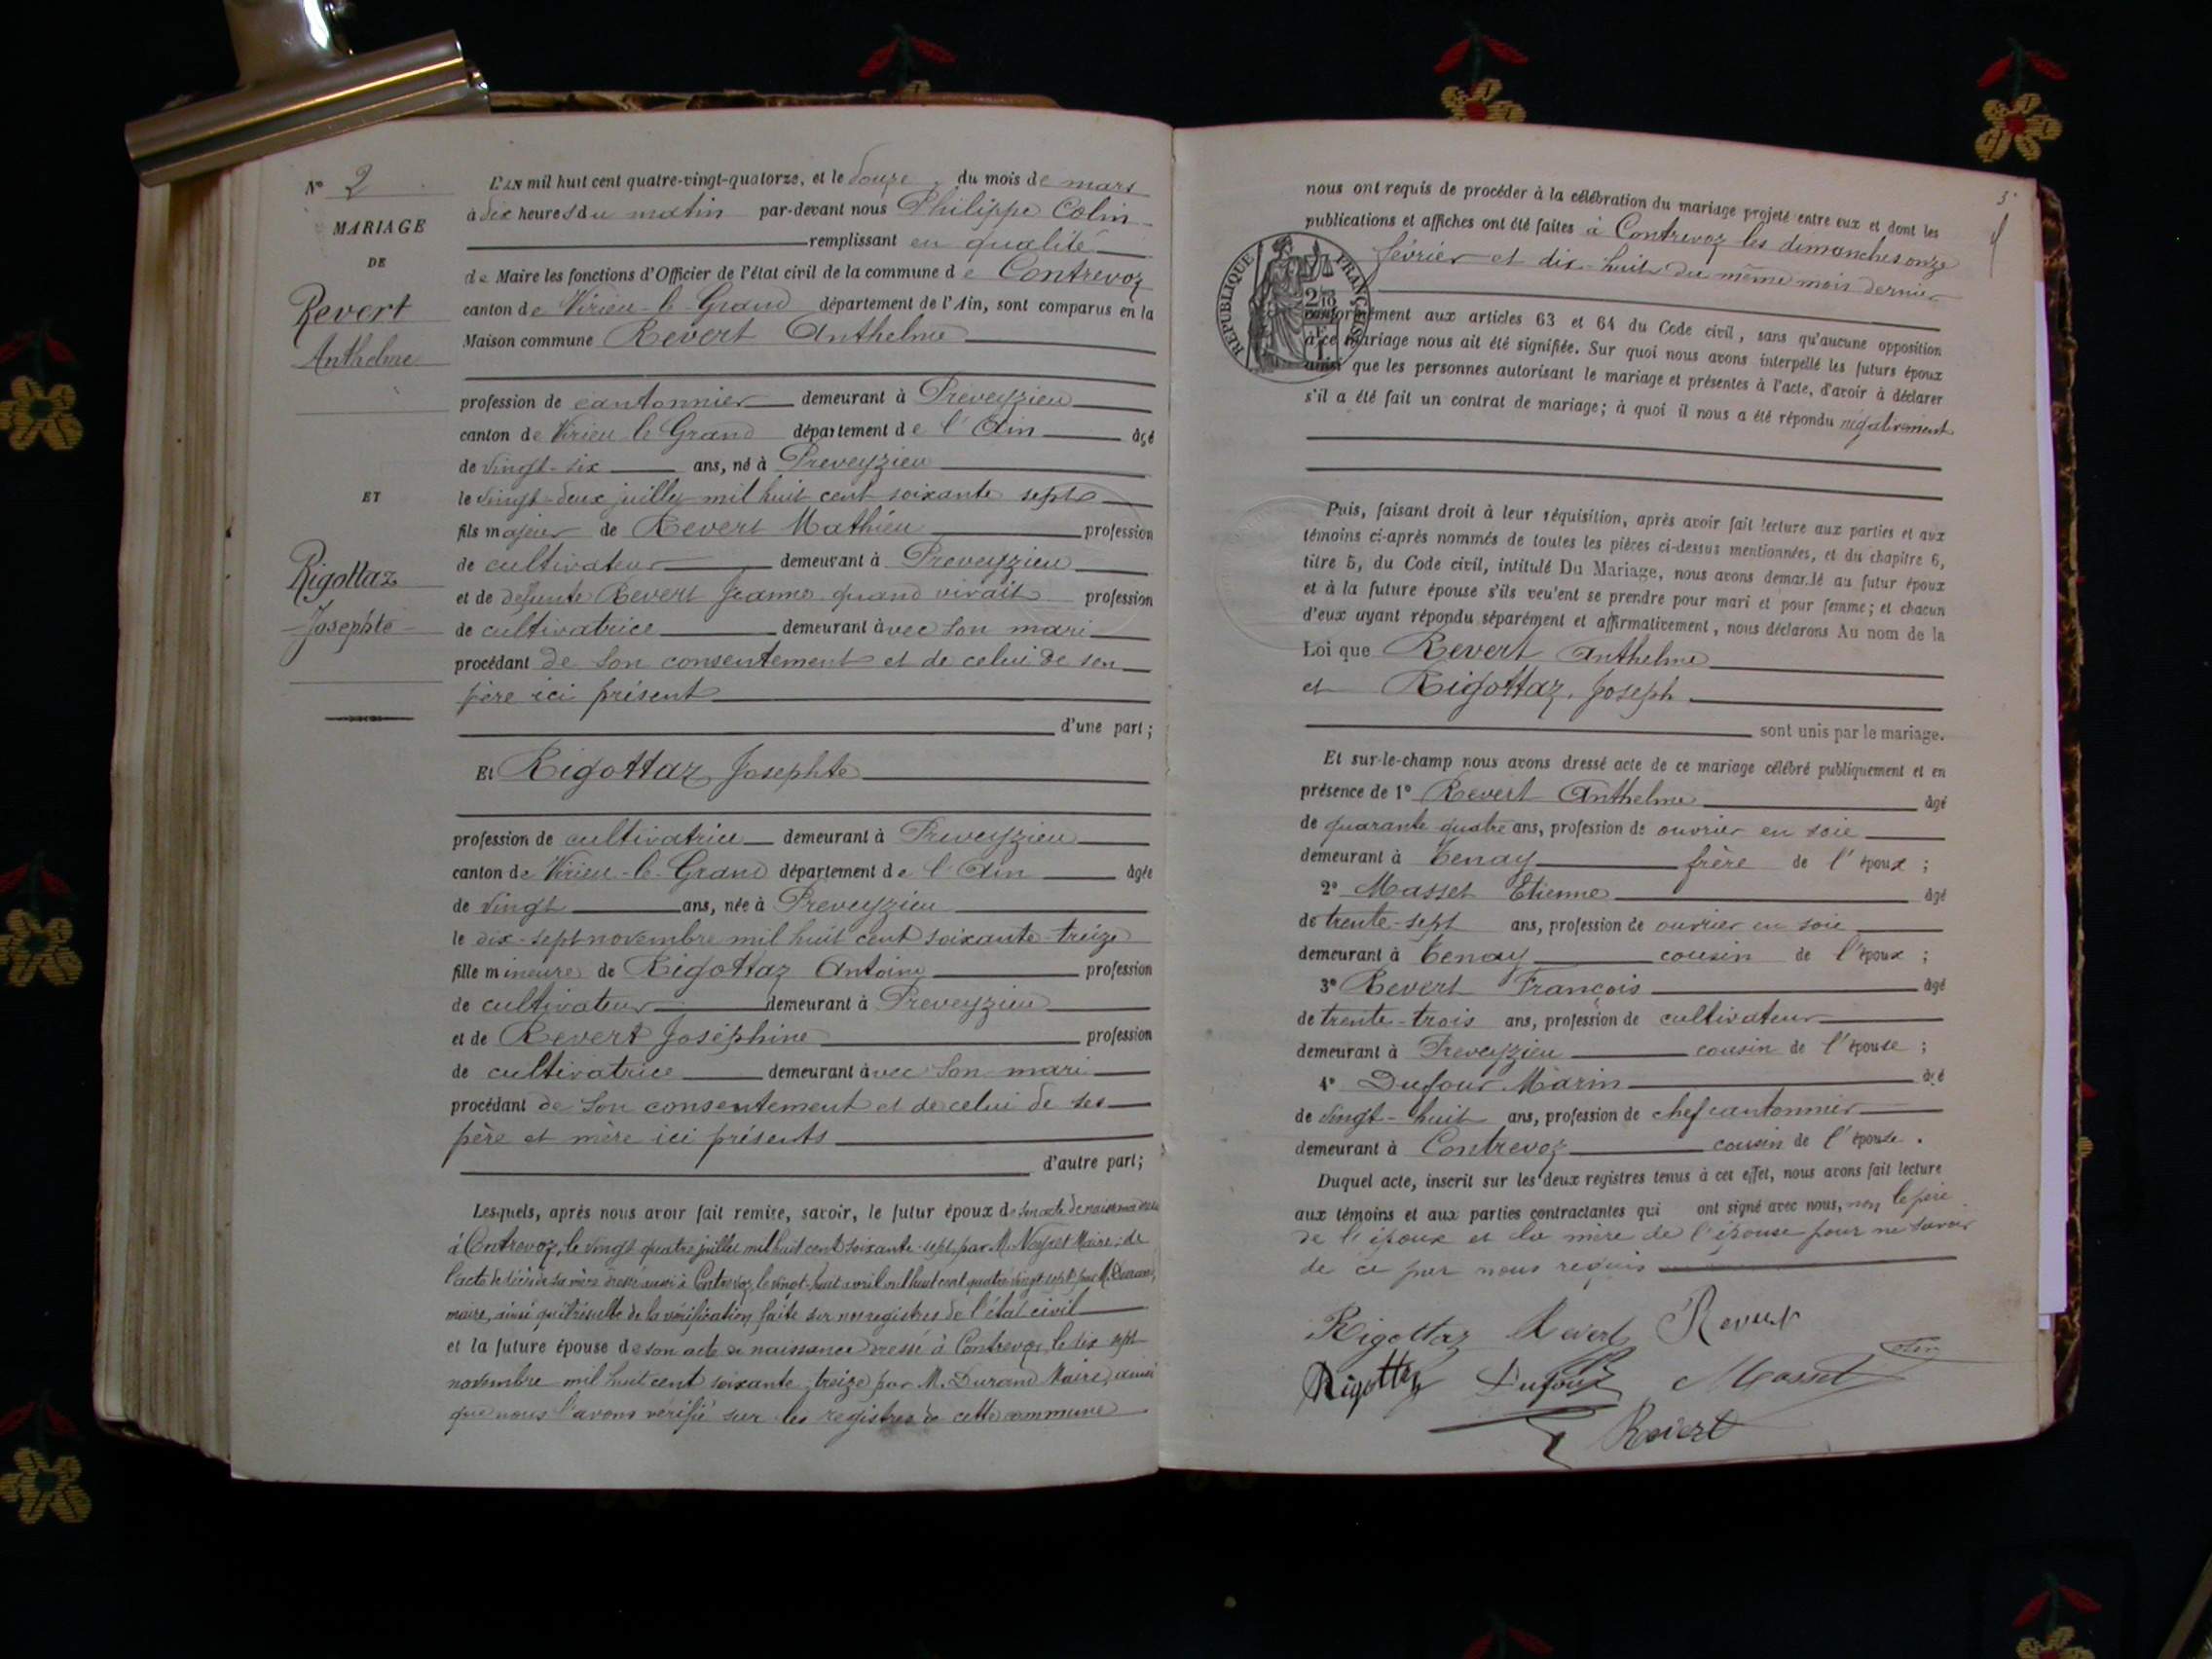 N° 2
MARIAGE
DE
Revert
Anthelme
ET
Rigottaz
Josephte
L'AN mil huit cent quatre-vingt-quatorze, et le douze du mois de mars
à dix heures du matin par-devant nous Philippe Colin
remplissant en qualité
de Maire les fonctions d'Officier de l'état civil de la commune de Contrevoz
canton de Virieu-le-Grand département de l'Ain, sont comparus en la
Maison commune Revert Anthelme
profession de cantonnier demeurant à Preveyzieu
canton de Virieu le Grand département de l'Ain âgé
de vingt-six ans, né à Preveyzieu
le vingt-deux juillet mil huit cent soixante sept
fils majeur de Revert Mathieu profession
de cultivateur demeurant à Preveyzieu
et de defunte Revert Jeanne quand vivait profession
de cultivatrice demeurant avec son mari
procédant de son consentement et de celui de son
père ici présent
d'une part;
Et Rigottaz Josephte
profession de cultivatrice demeurant à Preveyzieu
canton de Virieu-le-Grand département de l'Ain âgée
de vingt ans, née à Preveyzieu
le dix-sept novembre mil huit cent soixante-treize
fille mineure de Rigottaz Antoine profession
de cultivateur demeurant à Preveyzieu
et de Revert Joséphine profession
de cultivatrice demeurant avec son mari
procédant de son consentement et de celui de ses
père et mère ici présents
d'autre part;
Lesquels, après nous avoir fait remise, savoir, le futur époux de son acte de naissance
à Contrevoz, le vingt quatre juillet mil huit cent soixante-sept, par M. Neyret Maire; de
l'acte de décès de sa mère dressé aussi à Contrevoz, le vingt-huit avril mil huit cent quatre vingt sept par M. Durand,
maire, ainsi qu'il résulte de la vérification faite sur nos registres de l'état civil
et la future épouse de son acte de naissance dressé à Contrevoz, le dix sept
novembre mil huit cent soixante-treize par M. Durand Maire, ainsi
que nous l'avons vérifié sur les registres de cette commune
3
nous ont requis de procéder à la célébration du mariage projeté entre eux et dont les
publications et affiches ont été faites à Contrevoz les dimanches onze
février et dix-huit du même mois dernier
RÉPUBLIQUE FRANÇAISE
conformément aux articles 63 et 64 du Code civil, sans qu'aucune opposition
à ce mariage nous ait été signifiée. Sur quoi nous avons interpellé les futurs époux
ainsi que les personnes autorisant le mariage et présentes à l'acte, d'avoir à déclarer
s'il a été fait un contrat de mariage; à quoi il nous a été répondu négativement
Puis, faisant droit à leur réquisition, après avoir fait lecture aux parties et aux
témoins ci-après nommés de toutes les pièces ci-dessus mentionnées, et du chapitre 6,
titre 5, du Code civil, intitulé Du Mariage, nous avons demandé au futur époux
et à la future épouse s'ils veulent se prendre pour mari et pour femme; et chacun
d'eux ayant répondu séparément et affirmativement, nous déclarons Au nom de la
Loi que Revert Anthelme
et Rigottaz, Joseph
sont unis par le mariage.
Et sur-le-champ nous avons dressé acte de ce mariage célébré publiquement et en
présence de 1° Revert Anthelme âgé
de quarante quatre ans, profession de ouvrier en soie
demeurant à Tenay frère de l'époux;
2° Masset Etienne âgé
de trente-sept ans, profession de ouvrier en soie
demeurant à Tenay cousin de l'époux;
3° Revert François âgé
de trente-trois ans, profession de cultivateur
demeurant à Preveyzieu cousin de l'épouse;
4° Dufour Marin âgé
de vingt-huit ans, profession de chef cantonnier
demeurant à Contrevoz cousin de l'épouse.
Duquel acte, inscrit sur les deux registres tenus à cet effet, nous avons fait lecture
aux témoins et aux parties contractantes qui ont signé avec nous, non le père
de l'époux et la mère de l'épouse pour ne savoir
de ce par nous requis
Rigottaz Revert Revert
Colin
Rigottaz Dufour Masset
Revert